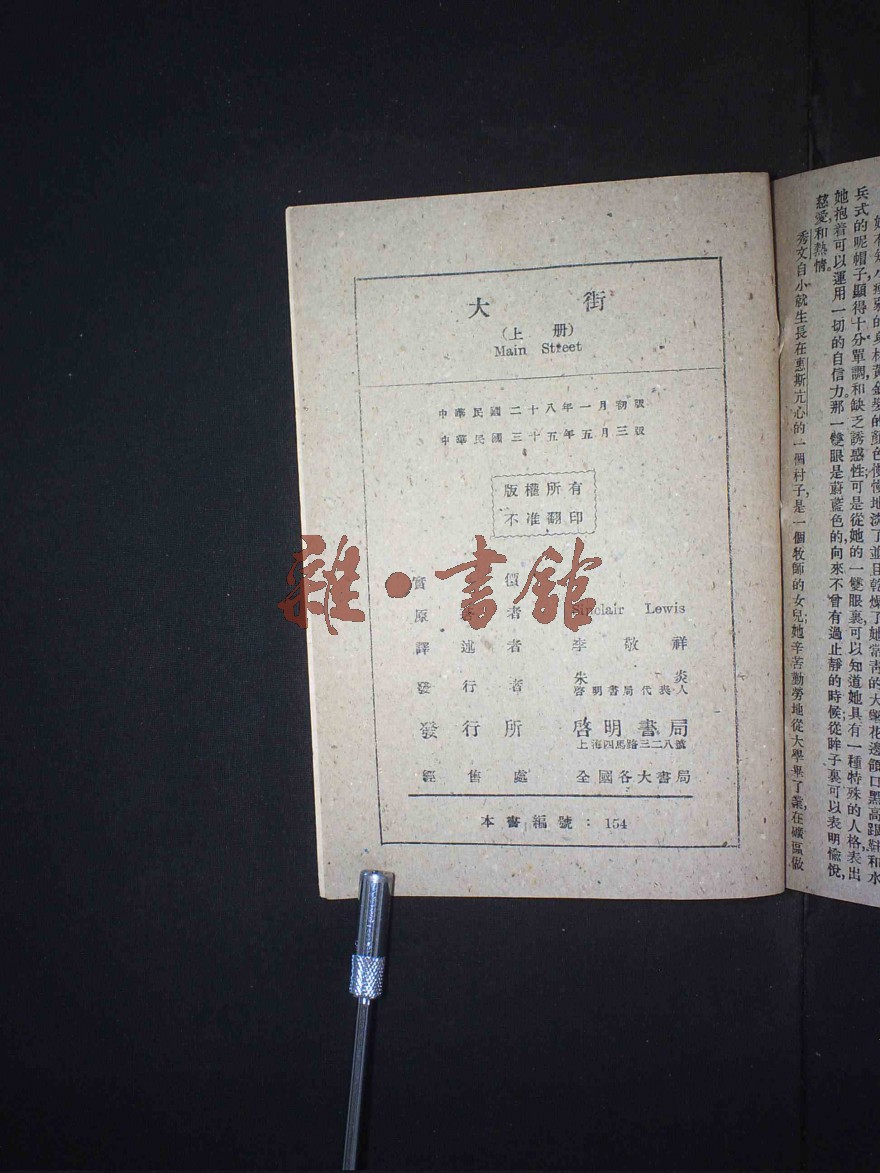 大 街
(上 册)
Main Street
中華民國二十八年一月初版
中華民國三十五年五月三版
版權所有
不准翻印
實 價
原 著 者 Sinclair Lewis
譯 述 者 李 敬 祥
發 行 者 朱 炎
啓明書局代表人
發 行 所 啓明書局
上海四馬路三二八號
經 售 處 全國各大書局
本書編號：154
雜·書館
兵式的呢帽子,顯得十分單調和缺乏誘惑性,可是從她的一雙眼裏,可以知道她具有一種特殊的人格,表出
她抱着可以運用一切的自信力。那一雙眼是蔚藍色的,向來不曾有過止靜的時候;從眸子裏可以表明愉悅,
慈愛,和熱情。
秀文自小就生長在惠斯亢心的一個村子,是一個牧師的女兒;她辛苦勤勞地從大學畢了業,在礦區做